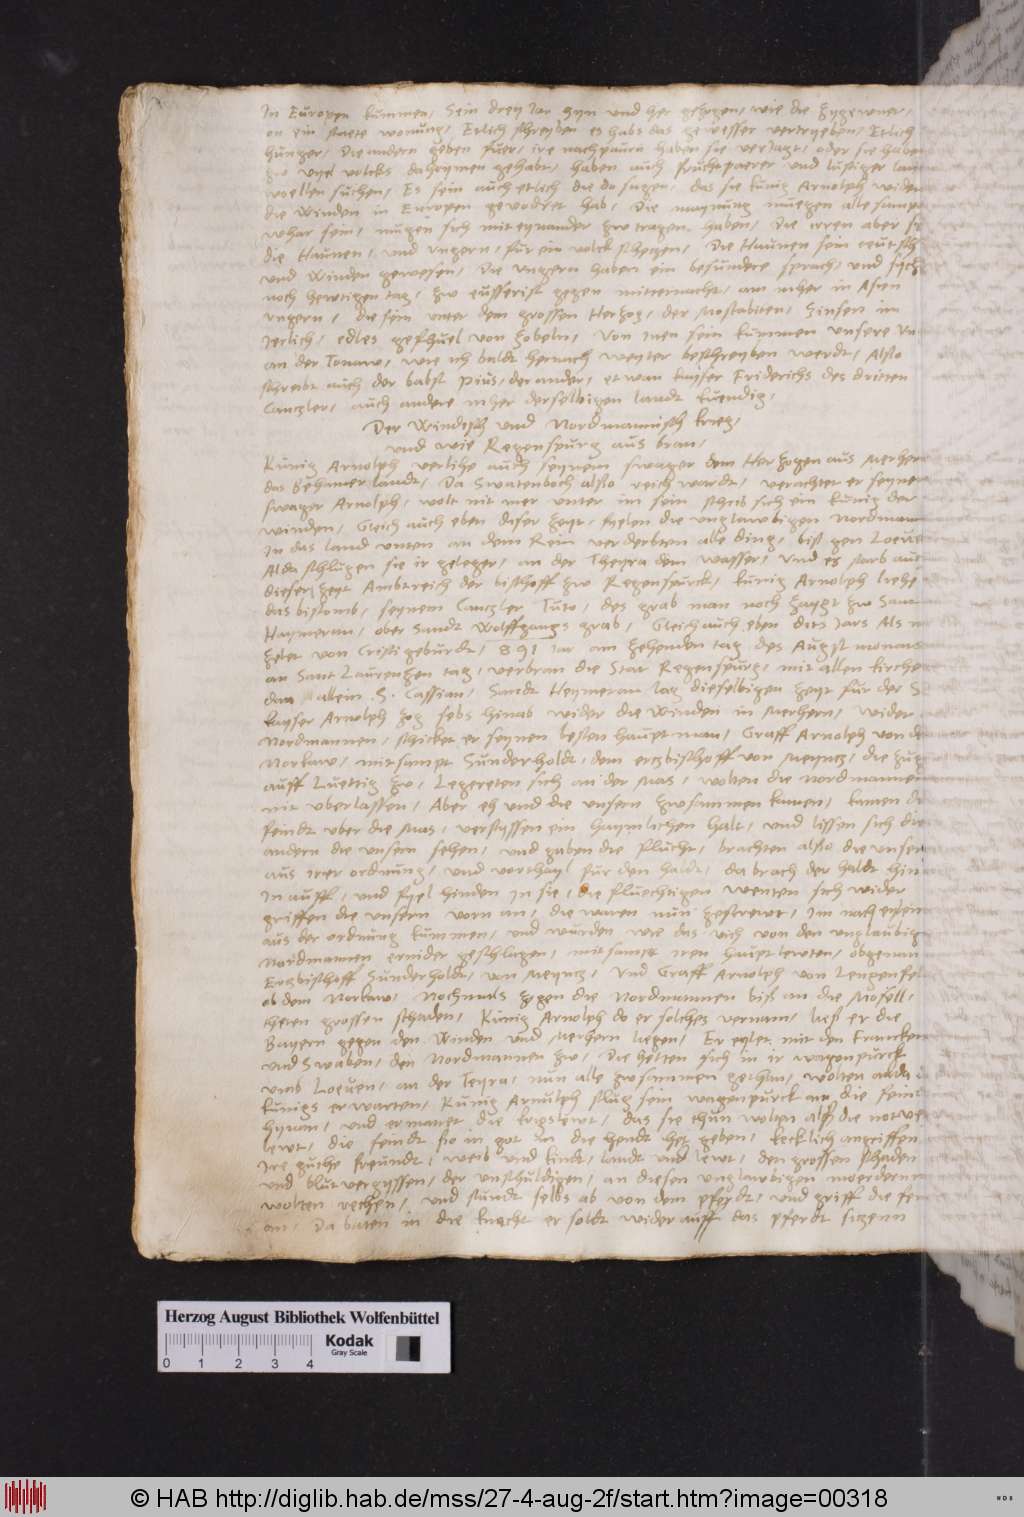 In Europen kummen, Sein drey Jar hyn und her gezogen, wie die Zygewner,
on ein staete wonung, Etlich schreyben es habs das gewesser vertryeben, Etlich
hunger, Die andern geben fuer, ire nachpaurn haben sie verJagt, oder sie haben
zw vyel volcks daheymen gehabt, haben auch fruchtpaerer und lustiger
woellen suchen, Es sein auch etlich die do sagen, das sie kunig Arnolph wider
die Winden in Europen gevodret hab, Die maynung muegen alle sampt
whar sein, mugen sich mit eynander zwtragen haben, Die irren aber
die Haunen, und vngern, fur ein volck schetzen, Die Haunen sein teutsch
und Winden gewesen, Die vngern haben ein besundere sprach, und
noch hewtigen tag, zw eusserist gegen mitternacht, am mher in Asien
vngern, die sein unter dem grossen Hertzog, der Moscabiten, Zinsen im
Jerlich, edles gefhuel von Zobeln, Von Inen sein kummen unsere
an der Tonaw, wie ich baldt hernach weyter beschreyben werdt, Also
schreibt auch der babst Pius, der ander, etwan kayser Friderichs des dritten
Cantzler, auch andere mher derselbigen landt kuendig,
Der Windisch und Nordmannisch krieg,
und wie Regenspurg aus bran,
Kunig Arnolph verlihe auch seynem swager dem Hertzogen aus Merhern
das Behmer landt, Da Swatenboch also reich wardt, verachtet er seynen
swager Arnolph, wolt nit mer unter im sein schrib sich ein kunig der
winden, Gleich auch eben diser zeyt, fyelen die unglawbigen Nordman
In das land unten an dem Rein verderbten alle ding, bis gen Loeven
Alda schlugen sie ir geleger, an der Theyra dem wasser, Und es starb auch
dieser zeyt Ambtreich der bischoff zw Regenspurck, kunig Arnolph liehe
das bistomb, seynem Cantzler Tuto, des grab man noch zaygt zw Sant
Haymeran, ober Sandt Wolffgangs grab, Gleich auch eben dits Jars Als m
zelet von Cristi geburdt, 891 iar am zehenden tag des Augst monats
an Sant Laurentzen tag, verbran die Stat Regenspurg, mit allen kirchen
dan allein S. Cassian, Sandt Heymeran lag dieselbigen zeyt fur der
kayser Arnolph zog selbs hinab wider die Winden in Merhern, wider
Nordmannen, schicket er seynen besten hauptman, Graff Arnolph von
Norkaw, mitsampt Sunderholdt, dem ertzbischoff von Meyntz, die
auff Luettig zw, Legereten sich an der Mas, wolten die Nordmannen
nit uberlassen, Aber eh und die unsern zwsammen kamen, kamen di
feindt uber die Mas, verstyssen ein haymlichen halt, und lissen sich die
andern die unsern sehen, und gaben die flucht, brachten also die unsern
aus irer ordnung, und vorthayl fur den haldt, da brach der haldt
In auff, und fyel hinden In sie, die fluechtigen wenten sich wider
griffen die unsern vorn an, die waren nun zestrewt, Im nacheylen
aus der ordnung kummen, und wurden wie das vich von den unglaubigen
Nordmannen ernider geschlagen, mitsampt iren haupt lewten, obgenan
Ertzbischoff Sunderholdt, von Meyntz, Und Graff Arnolph von Lengenfel
ob dem Norkaw, Nochmals zogen die Nordmannen biß an die Mosell,
theten grossen schaden, Kunig Arnolph do er solches vernam, lies er die
Bayern gegen den Winden und Merhern liegen, Er eylet mit den Francken
und Swaben, den Nordmannen zw, Die hetten sich in ir wagenpurck
umb Loeven, an der Teyra, nun alle zwsammen gethan, wolten alda
kunigs erwarten, Kunig Arnulph slug sein wagenpurck an die feindt
hynan, und ermanet die krigslewt, das sie thun wolten als die
lewt, die feindt sie in got In die hendt het geben, kecklich angriffen
Ire guethe freundt, weib und kindt, landt und lewt, den grossen schaden
und blutvergyssen, der unschuldigen, an diesen unglaubigen moerdern
wolten rechen, und stundt selbs ab von dem pferdt, und griff die
an, Da baten in die knecht er soldt wider auff das pferdt sitzenn
Herzog August Bibliothek Wolfenbüttel
Kodak
Gray Scale
0 1 2 3 4
© HAB http://diglib.hab.de/mss/27-4-aug-2f/start.htm?image=00318